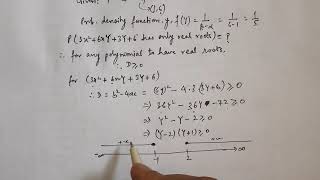 Prb. density function, f(Y) = 1/β-α = 1/6-1 = 1/5
P(3x²+6xY+3Y+6 has only real roots) = ?
∴ for any polynomial to have real roots,
∴ D≥0
for (3x²+6xY+3Y+6)
∴ D = b²-4ac = (6Y)²-4·3(3Y+6) ≥0
⇒ 36Y²-36Y-72≥0
⇒ Y²-Y-2≥0
⇒ (Y-2)(Y+1)≥0
-∞ -1 2 ∞